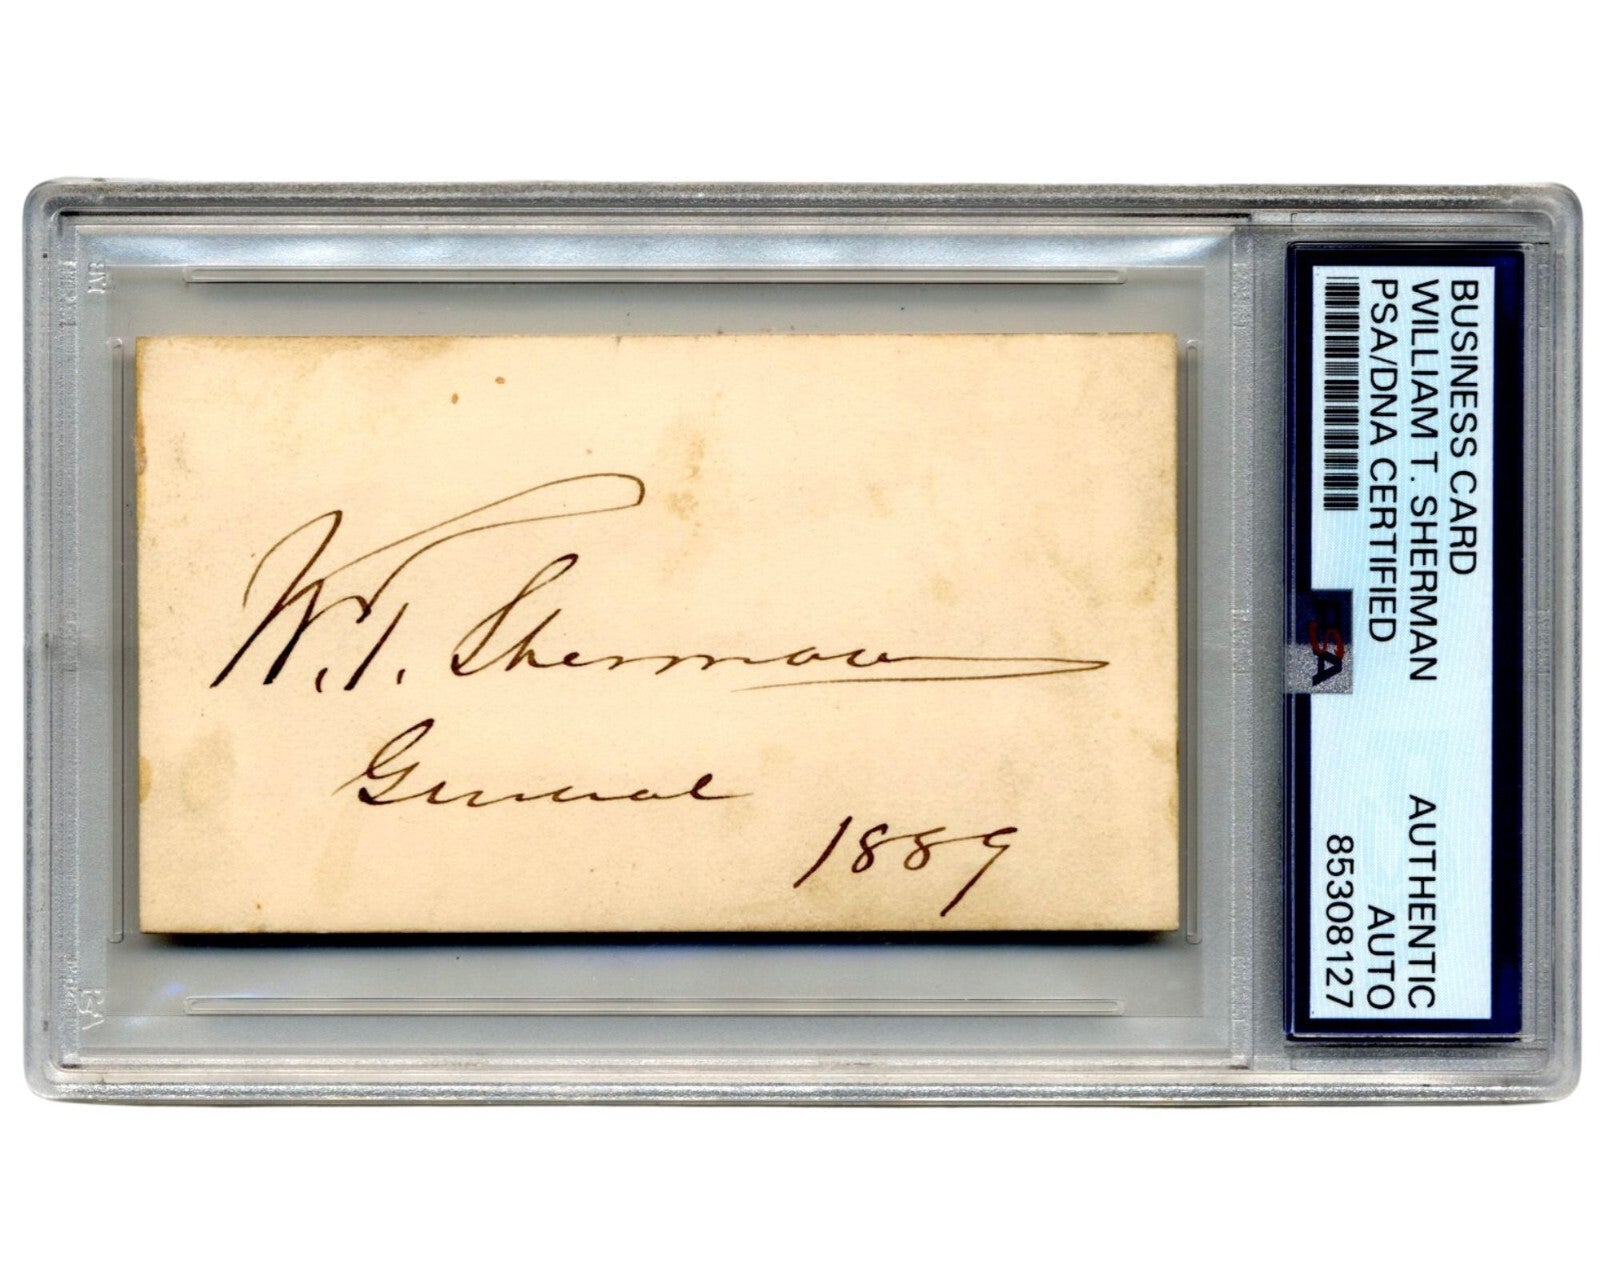 W. T. Sherman
General
1889
BUSINESS CARD
WILLIAM T. SHERMAN
PSA/DNA CERTIFIED
PSA
AUTHENTIC
AUTO
85308127
PSA